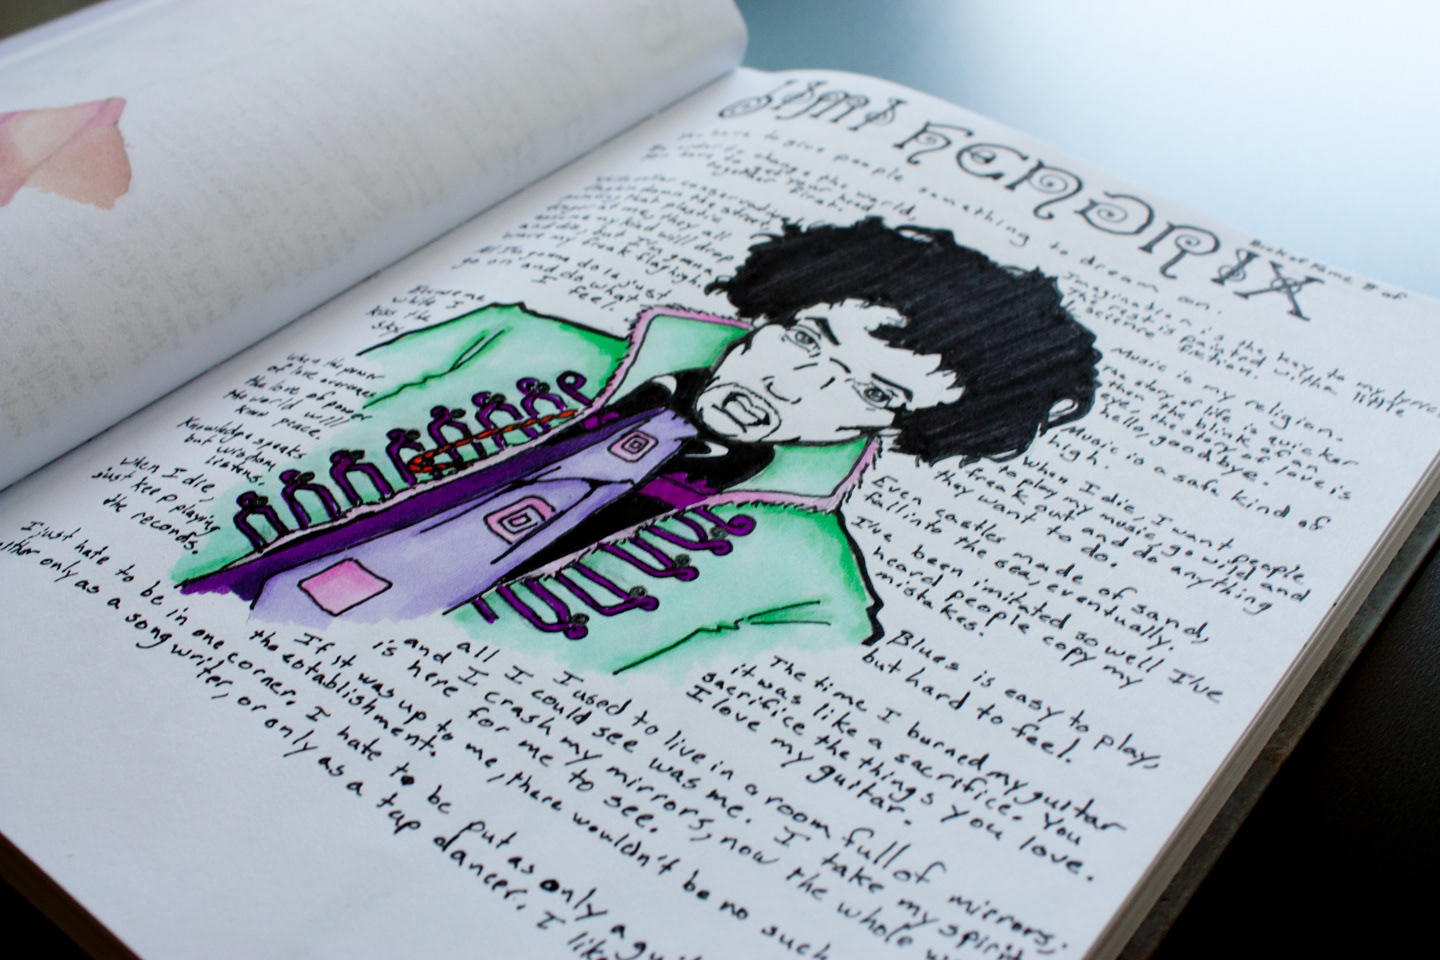 Jimi Hendrix
Book of Fame
You have to give people something to dream on.
change the world,
get your
together first.
White collar conservative
flashin down the street,
pointing that plastic
finger at me, they all
assume my kind will drop
and die, but I'm gonna
wave my freak flag high.
All I'm gonna do is just
go on and do what
I feel.
Excuse me
while I
kiss the
sky.
When the power
of love overcomes
the love of power
the world will
know peace.
Knowledge speaks
but wisdom
listens.
When I die
just keep playing
the records.
Imagination is the key to my lyrics.
The rest is painted with a little
science fiction.
Music is my religion.
The story of life is quicker
then the blink of an
eye, the story of love is
hello, goodbye.
Music is a safe kind of
high.
When I die, I want people
to play my music, go wild and
freak out and do anything
they want to do.
Even castles made of sand,
fall into the sea, eventually.
I've been imitated so well I've
heard people copy my
mistakes.
Blues is easy to play,
but hard to feel.
The time I burned my guitar
it was like a sacrifice. You
sacrifice the things you love.
I love my guitar.
I used to live in a room full of mirrors;
all I could see was me. I take my spirit
and I crash my mirrors, now the whole
is here for me to see.
If it was up to me, there wouldn't be no such
the establishment.
I just hate to be in one corner. I hate to be put as only a
either only as a song writer, or only as a tap dancer. I like